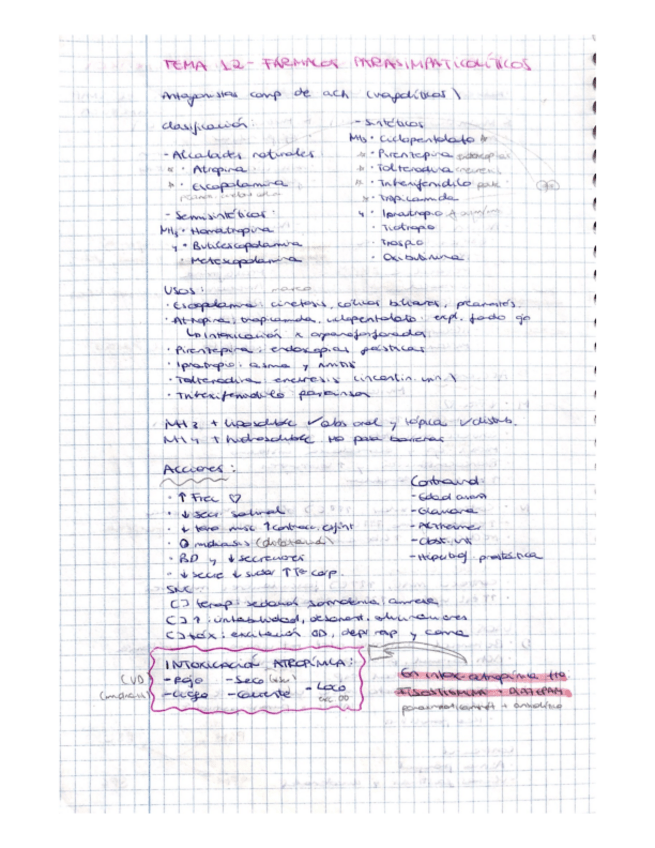 TEMA 12- FÁRMACOS PARASIMPATICOLÍTICOS
Antagonistas comp de ach (vagolíticos)
clasificación:
- Alcaloides naturales
· Atropina
· Escopolamina
- Semisintéticos:
NH4 · Homatropina
4 · Butilescopolamina
· Metescopolamina
- Sintéticos
NH3 · Ciclopentolato
· Pirenzepina endoscopias
· Tolterodina enuresis
· Trihexifenidilo park
· Tropicamida
4 · Ipratropio asma
· Tiotropio
· Trospio
· Oxibutinina
Usos: mareo
· Escopolamina: cinetosis, cólicos biliares, preanestés.
· Atropina, tropicamida, ciclopentolato: expl. fondo ojo
↳ intoxicación x organofosforados
· Pirenzepina: endoscopias gástricas
· Ipratropio: asma y rinitis
· Tolterodina enuresis (incontin. urin.)
· Trihexifenidilo parkinson
NH3 + liposoluble ✓ abs oral y tópica ✓ distrib.
NH4 + hidrosoluble no pasa barreras
Acciones:
· ↑ Frec ♡
· ↓ secr salival
· ↓ tono musc ↑ contracc esfint
· midriasis
· BD y ↓ secreciones
· ↓ secre ↓ sudor ↑ Tº corp.
SNC
[] terap: sedación somnolencia amnesia
[] ↑: irritabilidad, desorient. alucinaciones
[] tóx: excitación depr resp y coma
Contraind:
- Edad avanz
- Glaucoma
- Alzheimer
- Obst. int
- Hipertrof. prostática
INTOXICACIÓN ATROPÍNICA:
(VD) - Rojo - Seco
(midriasis) - Ciego - Caliente - Loco
En intox atropínica
FISOSTIGMINA + DIAZEPAM
parasimpaticomim + ansiolítico